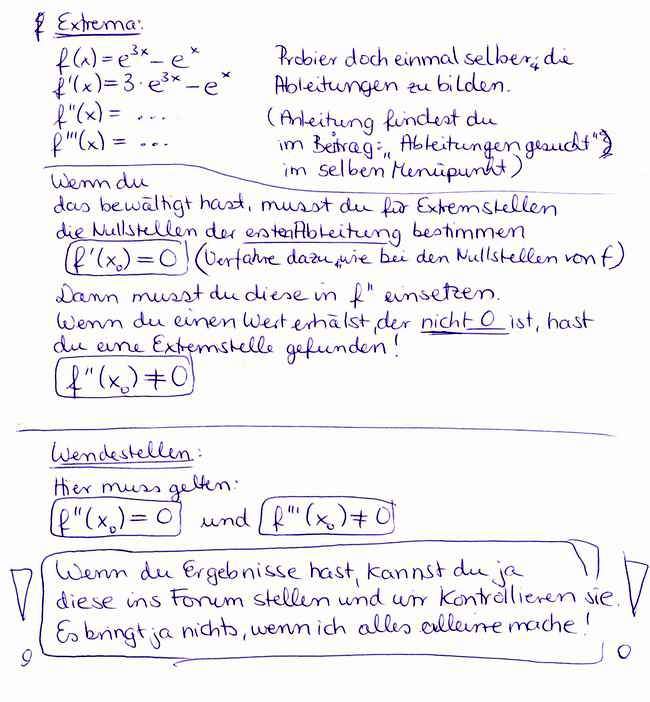 Extrema:
f(x) = e^{3x} - e^x Probier doch einmal selber, die
f'(x) = 3 · e^{3x} - e^x Ableitungen zu bilden.
f''(x) = ... (Anleitung findest du
f'''(x) = ... im Beitrag: „Ableitungen gesucht"
im selben Menüpunkt)
Wenn du
das bewältigt hast, musst du für Extremstellen
die Nullstellen der ersten Ableitung bestimmen
f'(x₀) = 0 (Verfahre dazu, wie bei den Nullstellen von f)
Dann musst du diese in f'' einsetzen.
Wenn du einen Wert erhälst, der nicht 0 ist, hast
du eine Extremstelle gefunden!
f''(x₀) ≠ 0
Wendestellen:
Hier muss gelten:
f''(x₀) = 0 und f'''(x₀) ≠ 0
Wenn du Ergebnisse hast, kannst du ja
diese ins Forum stellen und wir kontrollieren sie.
Es bringt ja nichts, wenn ich alles alleine mache!